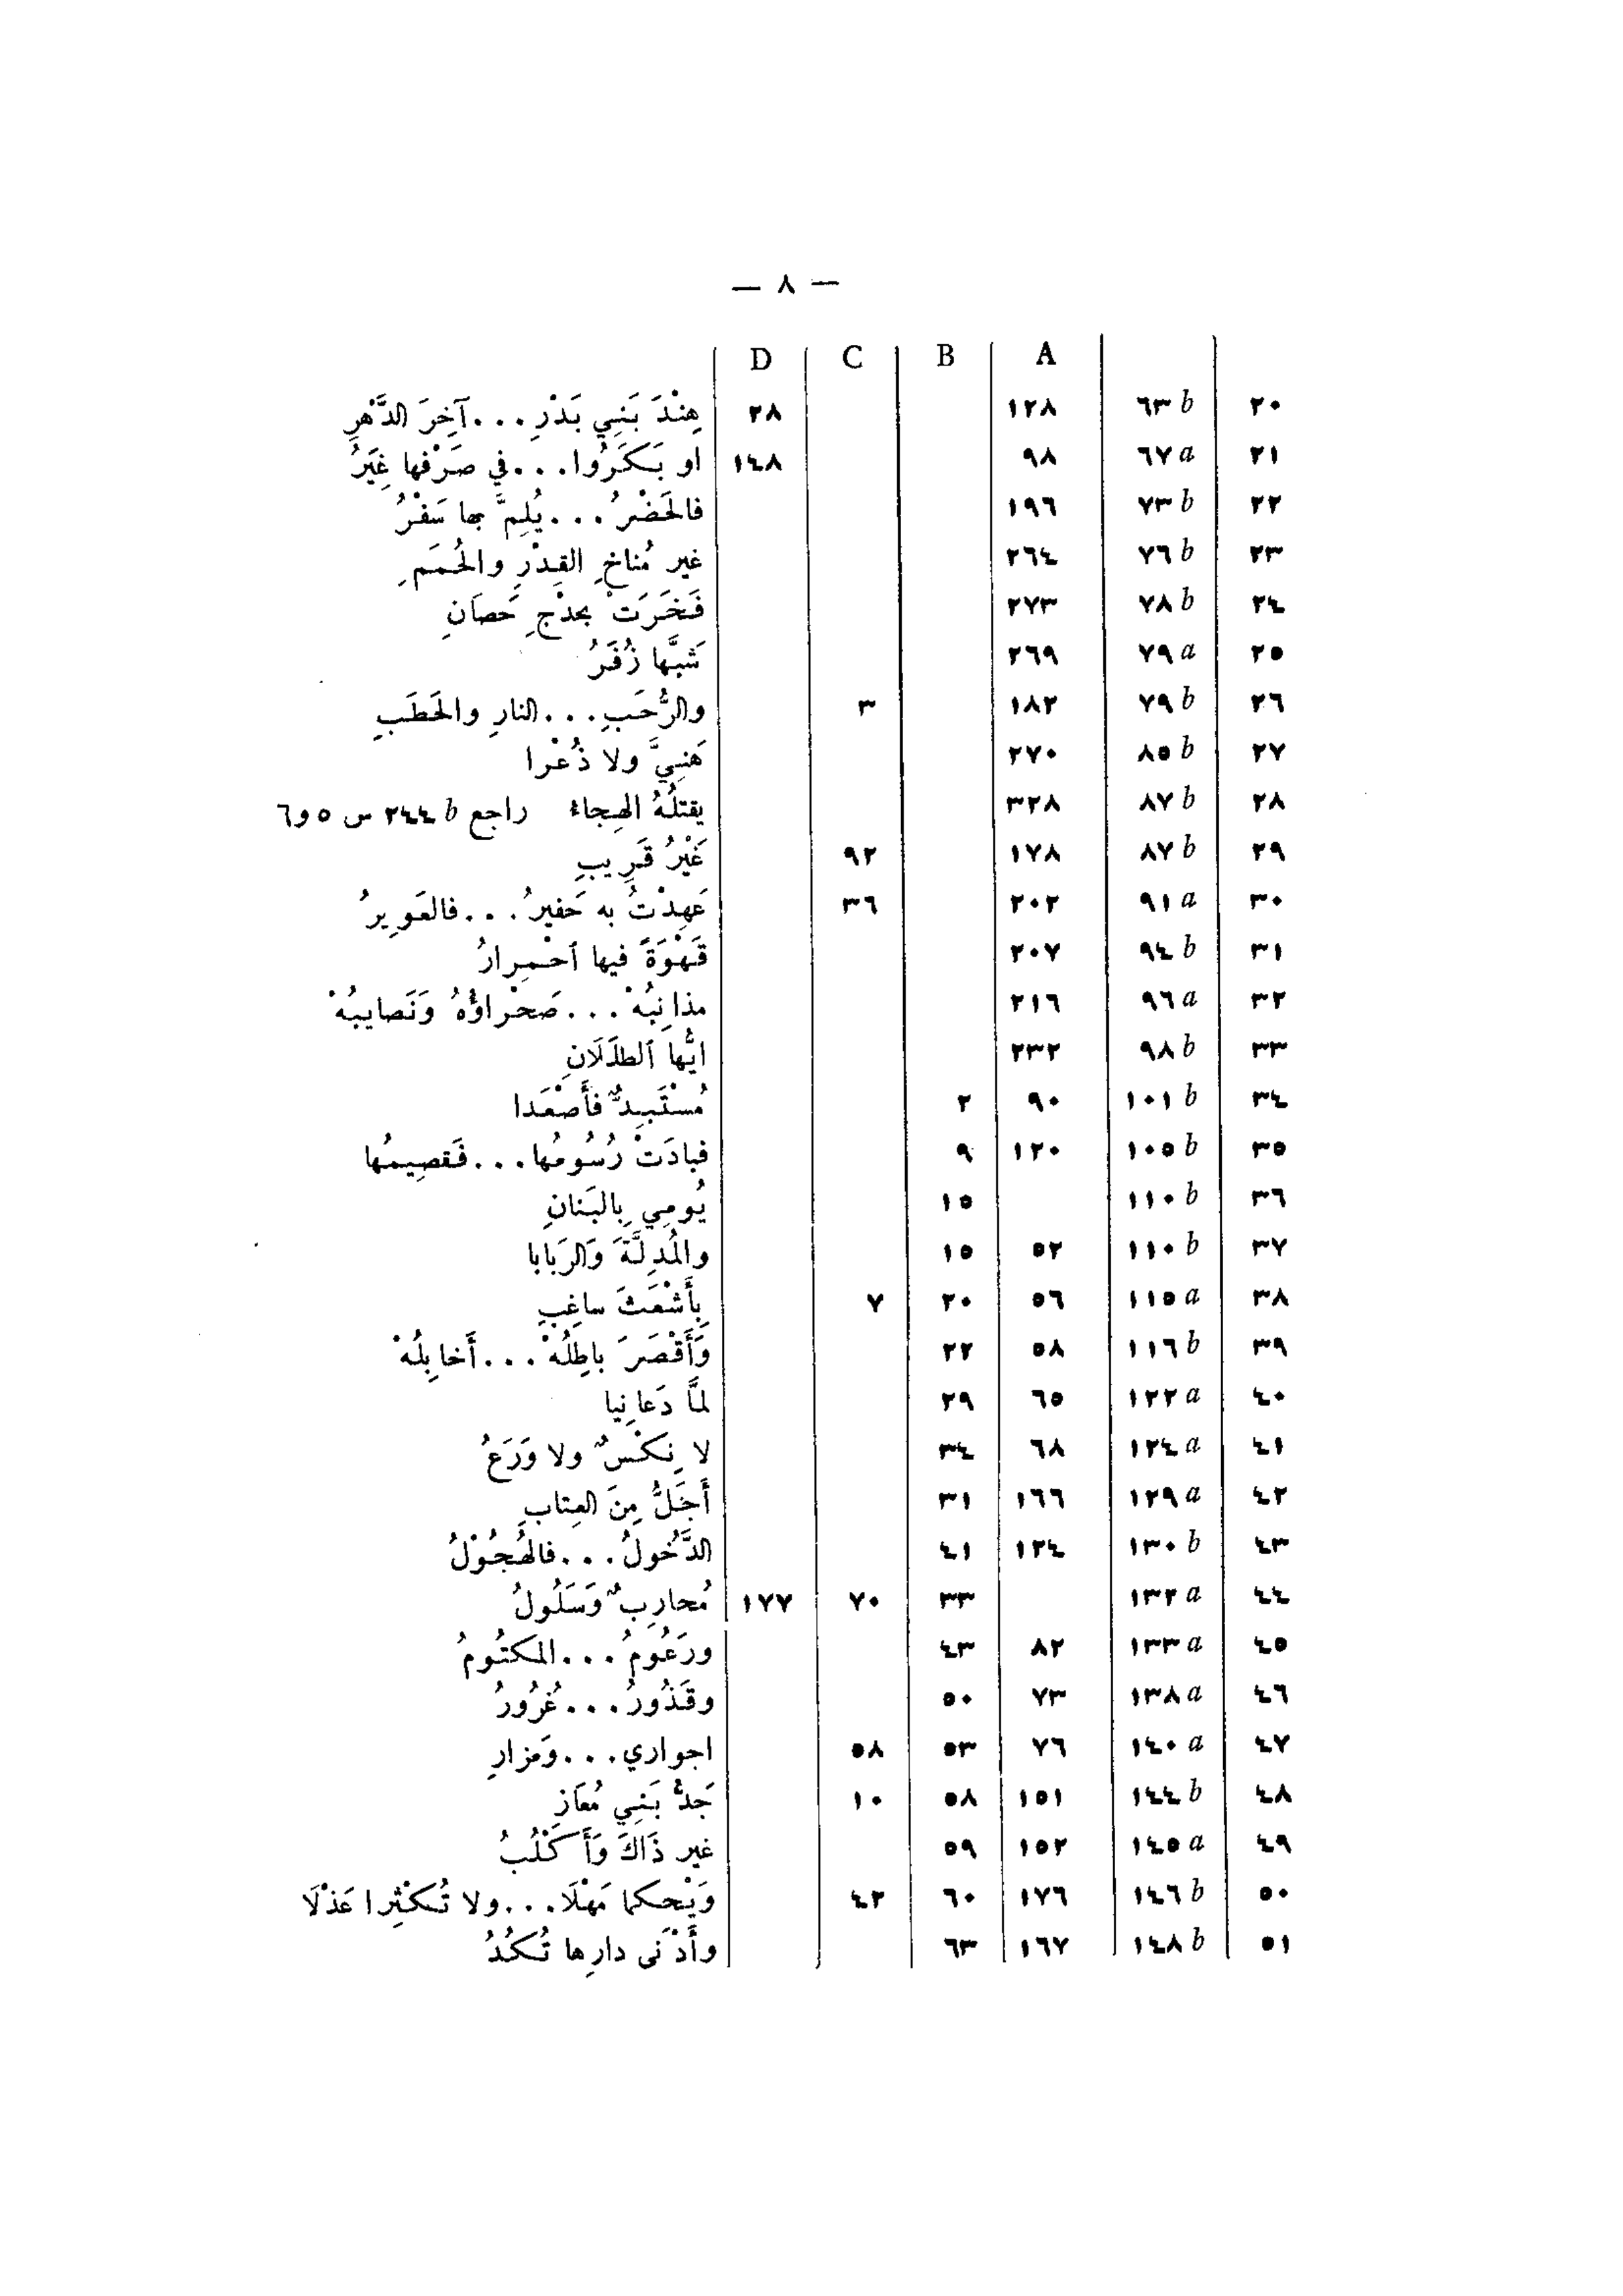 — ٨ —
A B C D
٢٠ ٦٣ b ١٢٨ ٢٨ هِنْدَ بَنِي بَدْرِ...آخِرَ الدَّهْرِ
٢١ ٦٧ a ٩٨ ١٤٨ او بَكَرُوا...في صَرْفها غِيَرُ
٢٢ ٧٣ b ١٩٦ فالحَضْرُ...يُلِمَّ بها سَفْرُ
٢٣ ٧٦ b ٢٦٤ غير مُناخِ القِدْرِ والحُمَمِ
٢٤ ٧٨ b ٢٧٣ فَخَرَتْ بحدْجِ حَصَانِ
٢٥ ٧٩ a ٢٦٩ شَبَّها زُفَرُ
٢٦ ٧٩ b ١٨٢ ٣ والرُّحَبِ...النارِ والحَطَبِ
٢٧ ٨٥ b ٢٧٠ هَنِيَّ ولا ذُعْرا
٢٨ ٨٧ b ٣٢٨ يقتلُهُ الهِجاءُ راجع ٢٤٤ b س ٥ و٦
٢٩ ٨٧ b ١٧٨ ٩٢ غَيْرُ قَرِيبِ
٣٠ ٩١ a ٢٠٢ ٣٦ عَهِدْتُ به حَفيرُ...فالعَوِيرُ
٣١ ٩٤ b ٢٠٧ قَهْوَةً فيها ٱحْمِرارُ
٣٢ ٩٦ a ٢١٦ مذانِبُهْ...صَحْراؤُهُ وَنَصايبُهْ
٣٣ ٩٨ b ٢٣٢ ايُّها ٱلطلَلَانِ
٣٤ ١٠١ b ٩٠ ٢ مُسْتَبِدٌّ فأَصْعَدا
٣٥ ١٠٥ b ١٢٠ ٩ فبادَتْ رُسُومُها...فَقصِيمُها
٣٦ ١١٠ b ١٥ يُومِي بِالبَنانِ
٣٧ ١١٠ b ٥٢ ١٥ والمُدِلَّةَ وَالرَبابا
٣٨ ١١٥ a ٥٦ ٢٠ ٧ بِأَشْعَثَ ساغِبِ
٣٩ ١١٦ b ٥٨ ٢٢ وَأَقْصَرَ باطِلُهْ...أَخابِلُهْ
٤٠ ١٢٢ a ٦٥ ٢٩ لمَّا دَعانِيا
٤١ ١٢٤ a ٦٨ ٣٤ لا نِكْسٌ ولا وَرَعُ
٤٢ ١٢٩ a ١٦٦ ٣١ أَجَلُّ مِنَ العِتابِ
٤٣ ١٣٠ b ١٢٤ ٤١ الدَّخُولُ...فالهُجُوْلُ
٤٤ ١٣٢ a ٣٣ ٧٠ ١٧٧ مُحارِبٌ وَسَلُولُ
٤٥ ١٣٣ a ٨٢ ٤٣ ورَعُومُ...المكتُومُ
٤٦ ١٣٨ a ٧٣ ٥٠ وقَذُورُ...غُرُورُ
٤٧ ١٤٠ a ٧٦ ٥٣ ٥٨ اجواري...وَمزارِ
٤٨ ١٤٤ b ١٥١ ٥٨ ١٠ جَدُّ بَنِي مُعَازِ
٤٩ ١٤٥ a ١٥٢ ٥٩ غير ذَاكَ وَأَكْلُبُ
٥٠ ١٤٦ b ١٧٦ ٦٠ ٤٢ وَيْحكما مَهْلَا...ولا تُكثِرا عَذْلَا
٥١ ١٤٨ b ١٦٧ ٦٣ وأَدْنَى دارِها تُكُدُ